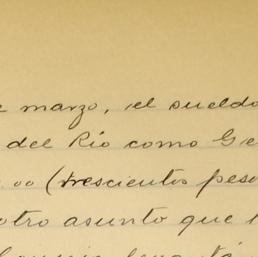 e marzo, el sueldo
del Río como Ge
.oo (trescientos peso
otro asunto que